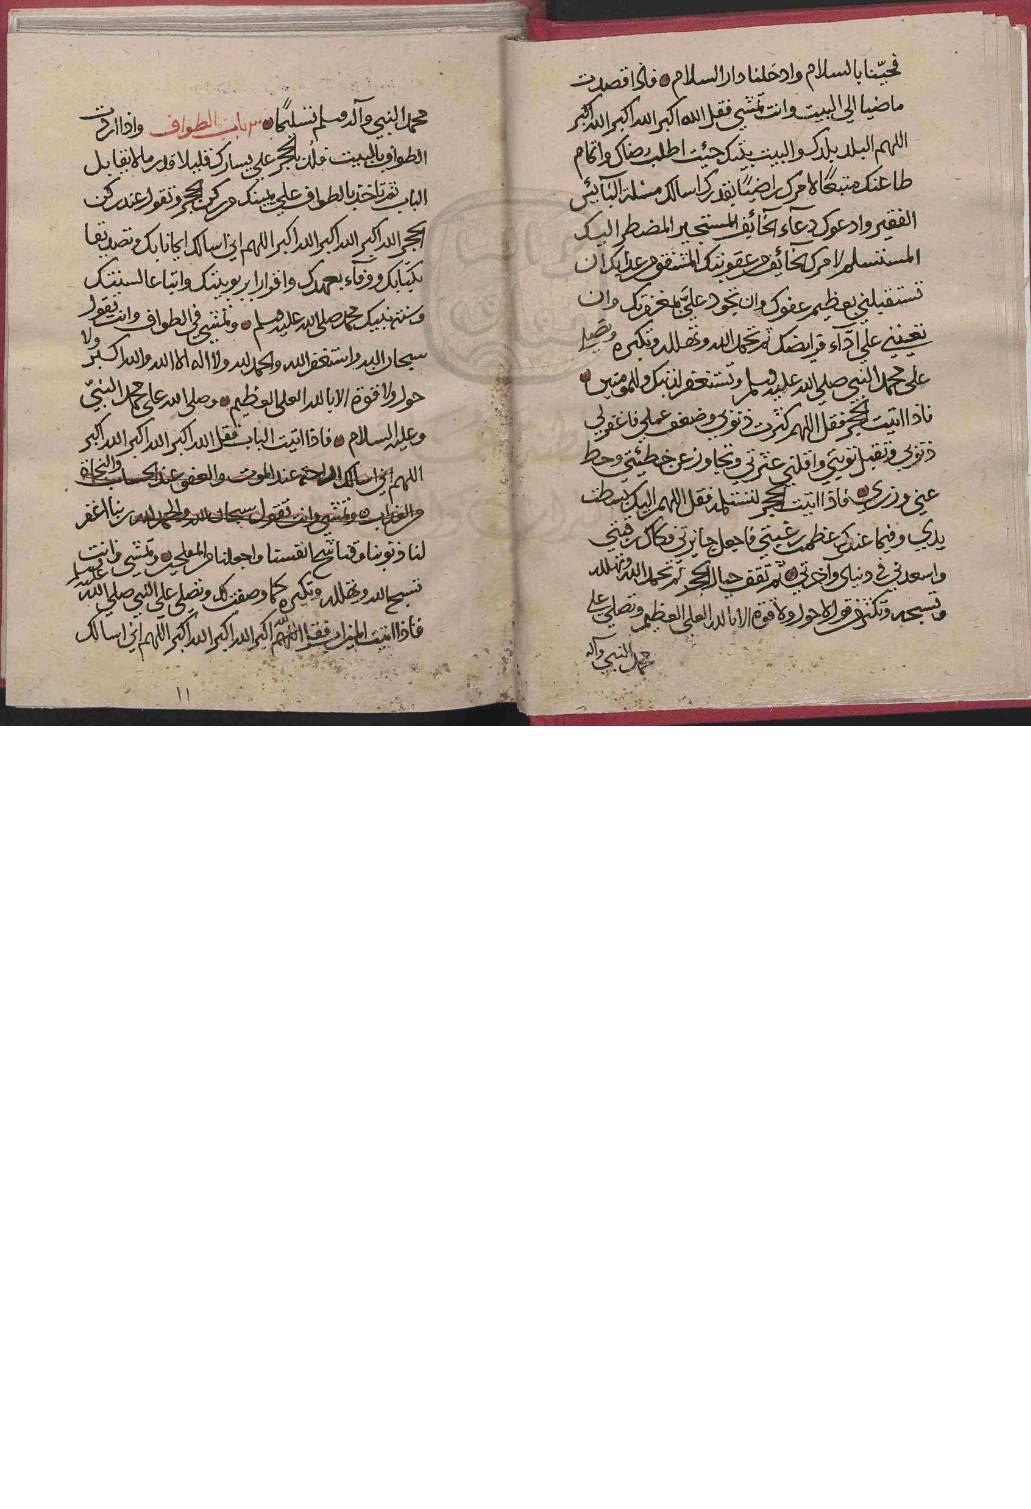 فحيّنا بالسلام وادخلنا دار السلام فاذا قصدت
ماضيا الي البيت وانت تمشي فقل الله اكبر الله اكبر الله اكبر
اللهم البلد بلدك والبيت بيتك جئت اطلب رضاك واتمام
طاعتك متبعًا لامرك راضيًا بقدرك اسالك مسلة البآئس
الفقير وادعوك دعآء الخآئف المستجير المضطر اليك
المستسلم لامرك الخآئف من عقوبتك المشفق من عذابك ان
تستقبلني بعظيم عفوك وان تجود علي بمغفرتك وان
تعينني علي ادآء فرايضك ثم تحمد الله وتهلله وتكبره وتصلي
علي محمد النبي صلي الله عليه وسلم وتستغفر لذنبك وللمومنين
فاذا اتيت الحجر فقل اللهم كثرت ذنوبي وضعف عملي فاغفر لي
ذنوبي وتقبل توبتي واقلني عثرتي وتجاوز عن خطيئتي وحط
عني وزري فاذا اتيت الحجر لتستلمه فقل اللهم اليك بسطت
يدي وفيما عندك عظمت رغبتي فاجعل جائزتي فكاك رقبتي
واسعدني في دنياي واخرتي ثم تقف حيال الحجر ثم تحمد الله وتهلله
وتسبحه وتكثر من قول لا حول ولا قوة الا بالله العلي العظيم وتصلي علي
محمد النبي وآله
محمد النبي وآله وسلم تسليمًا باب الطواف واذا اردت
الطواف بالبيت الحجر علي يسارك قليلا قدر ما لا يقابل
الباب ثم تاخذ بالطواف علي يمينك من ركن الحجر وتقول عند ركن
الحجر الله اكبر الله اكبر الله اكبر اللهم اني اسالك ايمانا بك وتصديقا
بكتابك ووفآء بعهدك واقرارا بربوبيتك واتباعا لسنتك
وسنة نبيك محمد صلي الله عليه وسلم وتمشي في الطواف وانت تقول
سبحان الله واستغفر الله والحمد لله ولا اله الا الله والله اكبر ولا
حول ولا قوة الا بالله العلي العظيم وصلي الله علي محمد النبيّ
وعليه السلام فاذا اتيت الباب فقل الله اكبر الله اكبر الله اكبر
اللهم اني اسالك الراحة عند الموت والعفو عند الحساب والنجاة
من العذاب وتمشي وانت تقول سبحان الله والحمد لله ربنا اغفر
لنا ذنوبنا وقنا شح انفسنا واجعلنا من المفلحين وتمشي وانت
تسبح الله وتهلله وتكبره كما وصفت لك وتصلي علي النبي صلي الله عليه وسلم
فاذا اتيت الميزاب فقل اللهم الله اكبر الله اكبر الله اكبر اللهم اني اسالك
١١